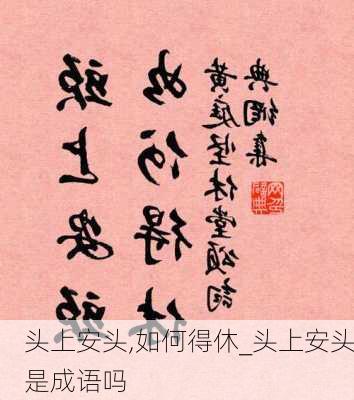 頭上安頭
如何得休
黄庭坚休堂頌詞
典網集
头上安头,如何得休_头上安头
是成语吗